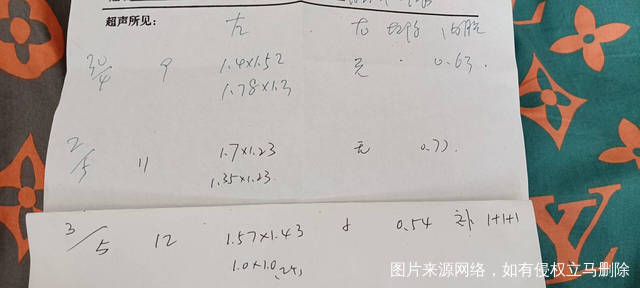 超声所见:
左 右 内膜
30/4 9 1.4×1.52 无 0.63.
1.78×1.3
2/5 11 1.7×1.23 无 0.77.
1.35×1.23
3/5 12 1.57×1.43 0.54 补 1+1+1
1.0×1.0
图片来源网络,如有侵权立马删除